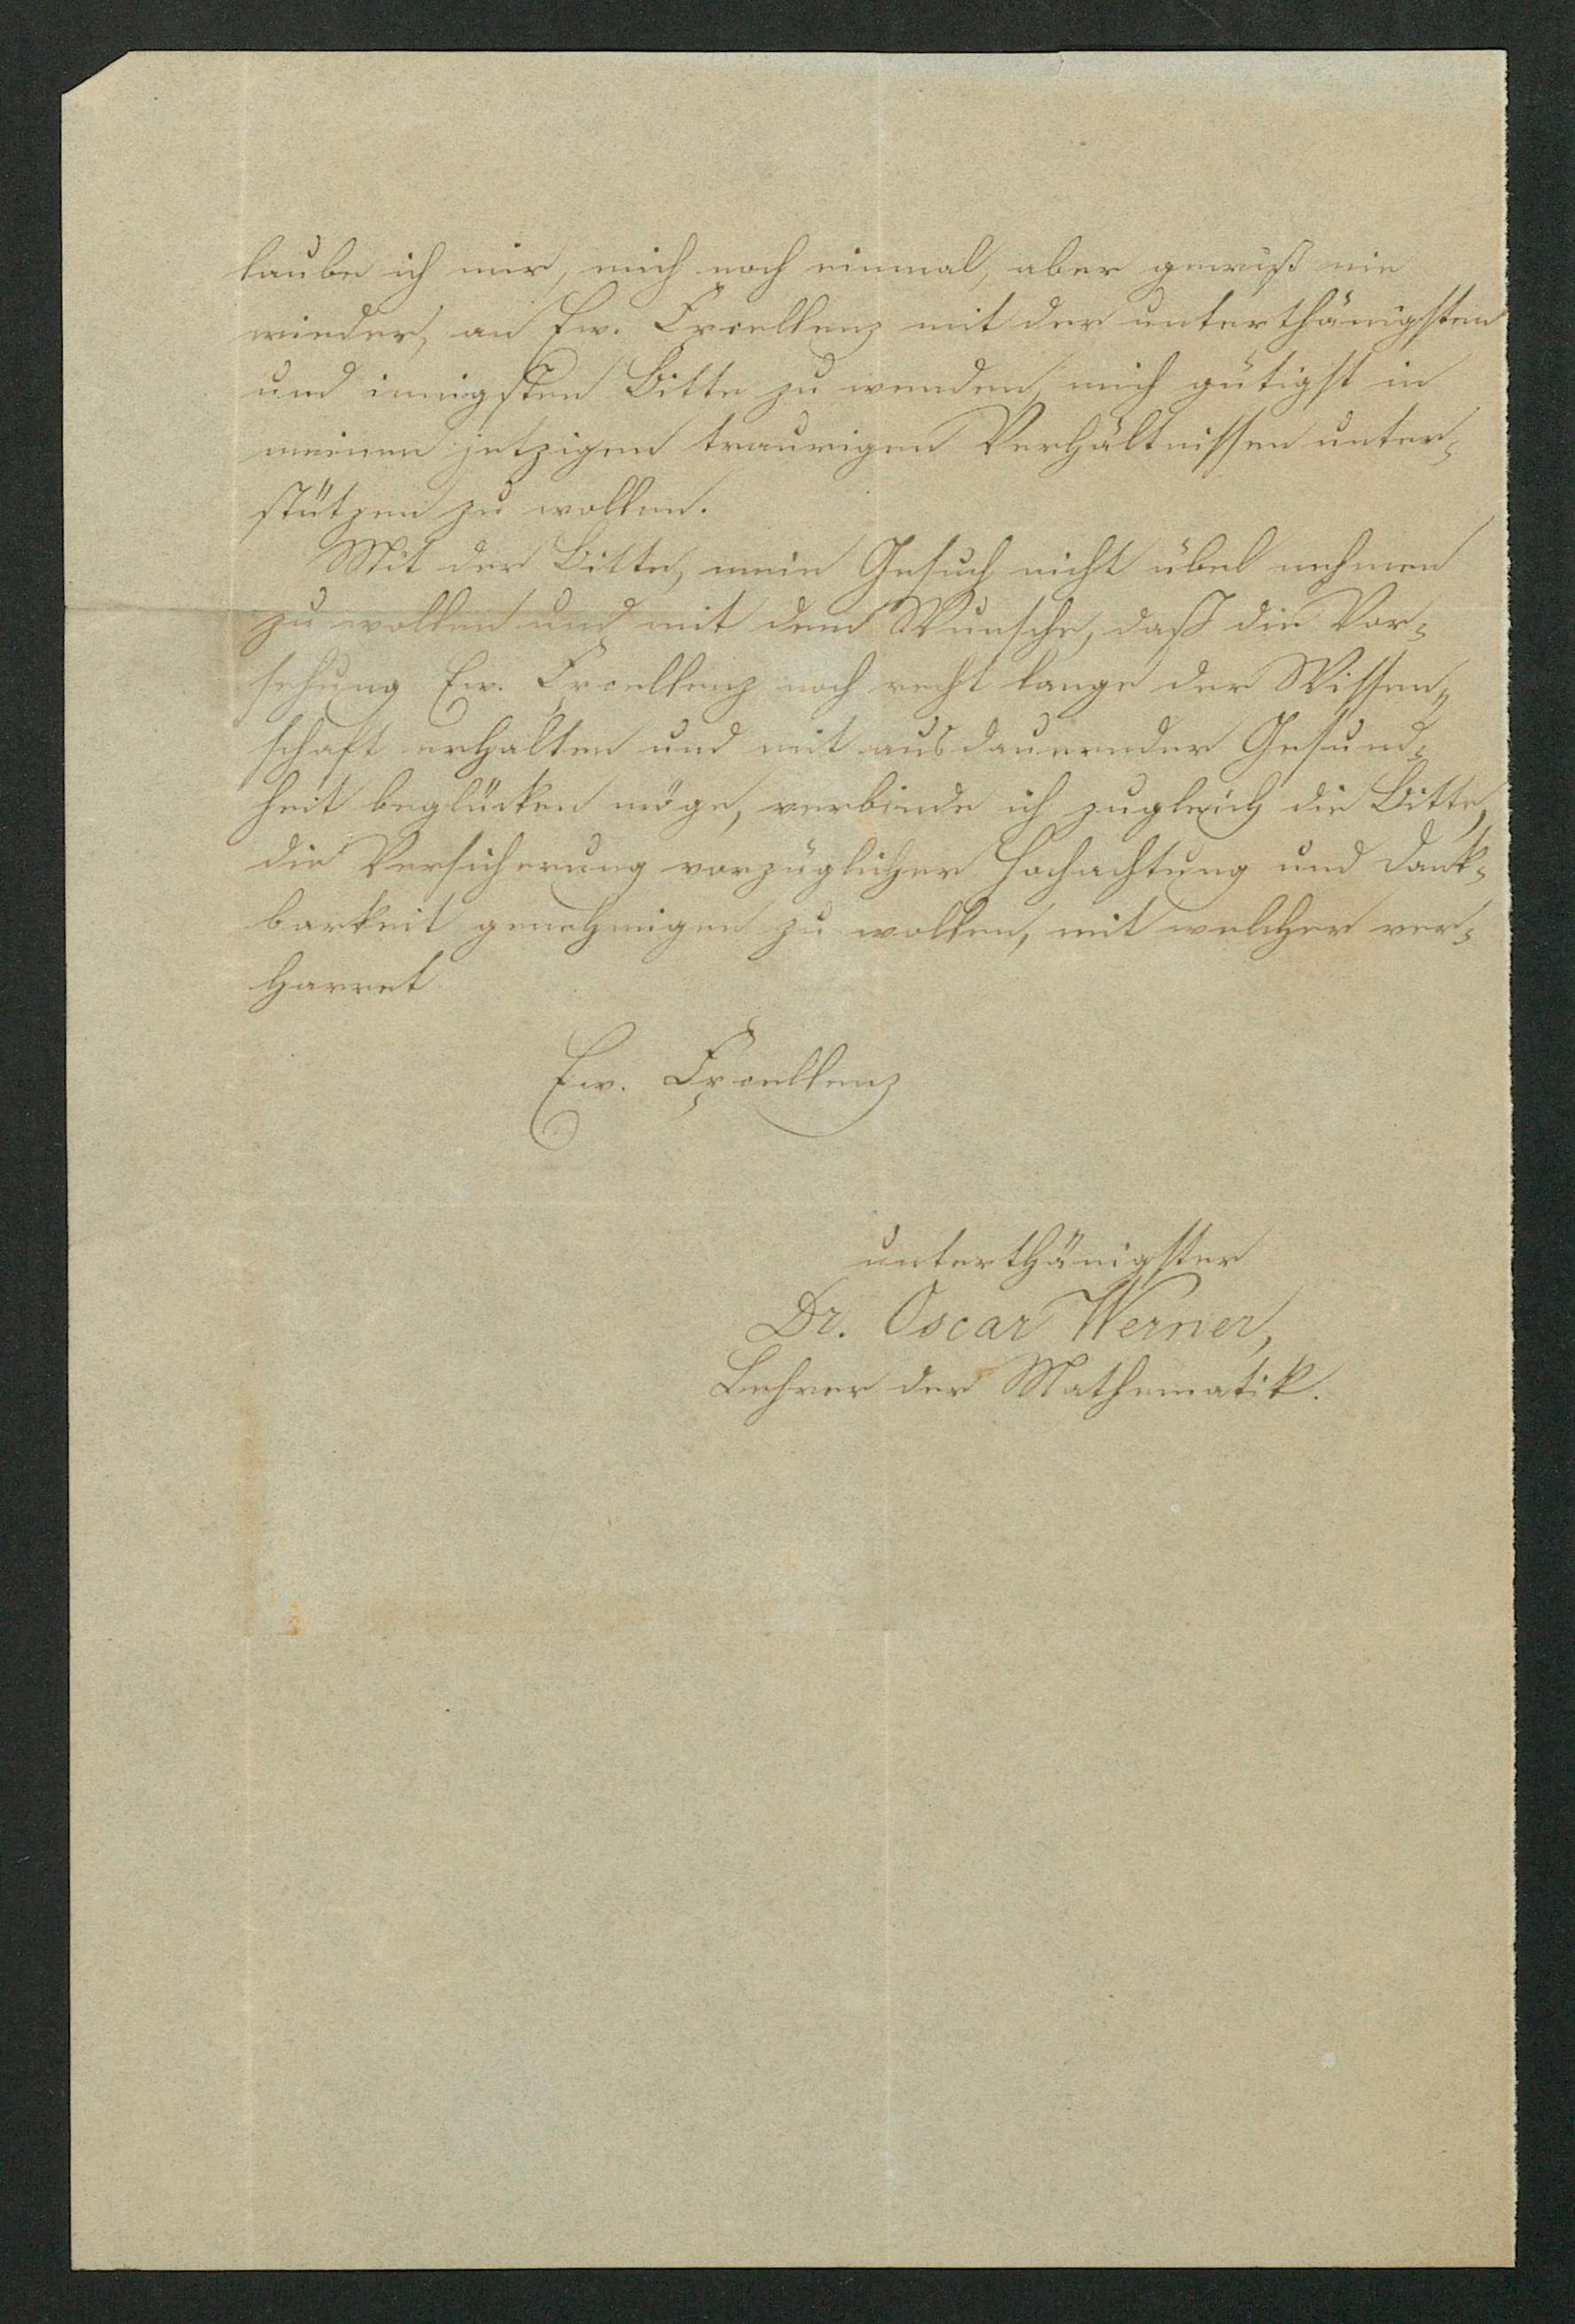 laube ich mir, mich noch einmal, aber gewiß nie
wieder, an Ew. Excellenz mit der unterthänigsten
und innigsten Bitte zu wenden, mich gütigst in
meinen jetzigen traurigen Verhältnissen unter-
stützen zu wollen.
Mit der Bitte, mein Gesuch nicht übel nehmen
zu wollen und mit dem Wunsche, daß die Vor-
sehung Ew. Excellenz noch recht lange der Wissen-
schaft erhalten und mit ausdauernder Gesund-
heit beglücken möge, verbinde ich zugleich die Bitte,
die Versicherung vorzüglicher Hochachtung und Dank-
barkeit genehmigen zu wollen, mit welcher ver-
harret
Ew. Excellenz
unterthänigster
Dr. Oscar Werner,
Lehrer der Mathematik.